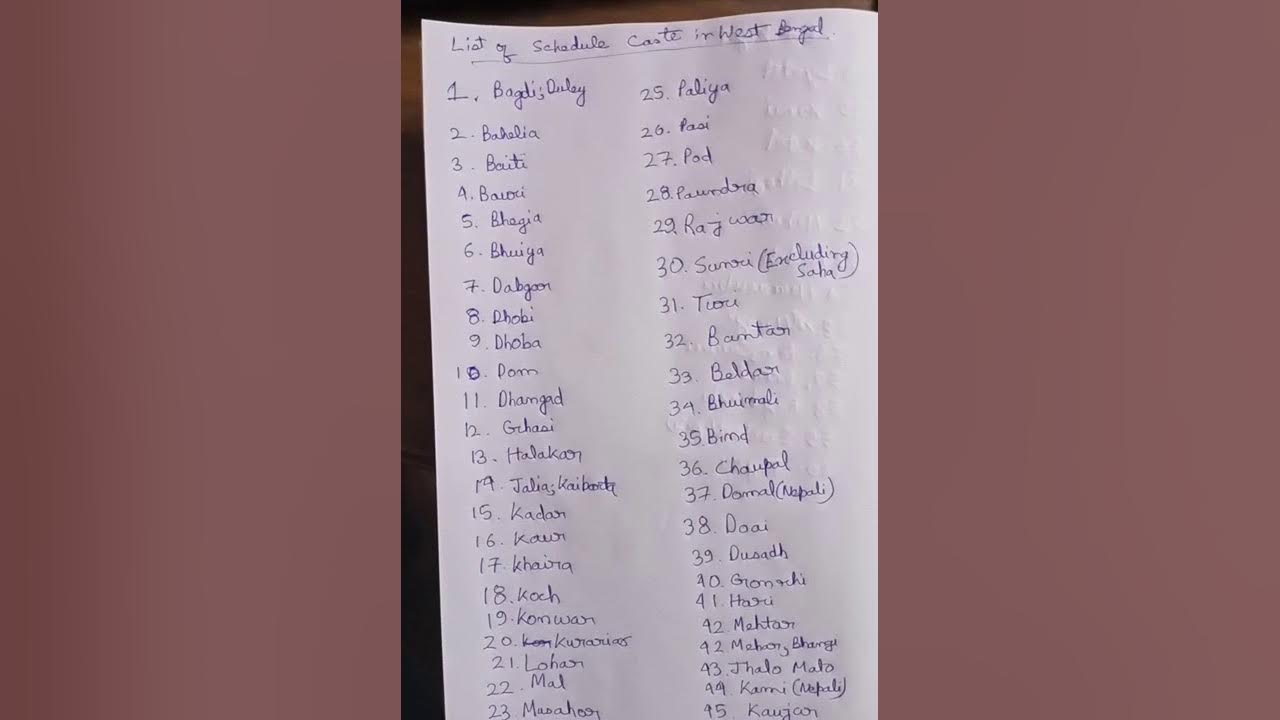 List of Schedule Caste in West Bengal.
1. Bagdi; Duley
2. Bahelia
3. Baiti
4. Bauri
5. Bhogia
6. Bhuiya
7. Dabgar
8. Dhobi
9. Dhoba
10. Dom
11. Dhangad
12. Ghasi
13. Halakar
14. Jalia; Kaibarta
15. Kadar
16. Kaur
17. Khaira
18. Koch
19. Konwar
20. Kurarias
21. Lohar
22. Mal
23. Masahor
25. Paliya
26. Pasi
27. Pod
28. Paundra
29. Rajwar
30. Sunri (Excluding
Saha)
31. Turi
32. Bantar
33. Beldar
34. Bhuimali
35. Bind
36. Chaupal
37. Damal (Nepali)
38. Doai
39. Dusadh
40. Gonrhi
41. Hari
42. Mehtar
42 Mehar; Bhangi
43. Jhalo Malo
44. Kami (Nepali)
45. Kanjar